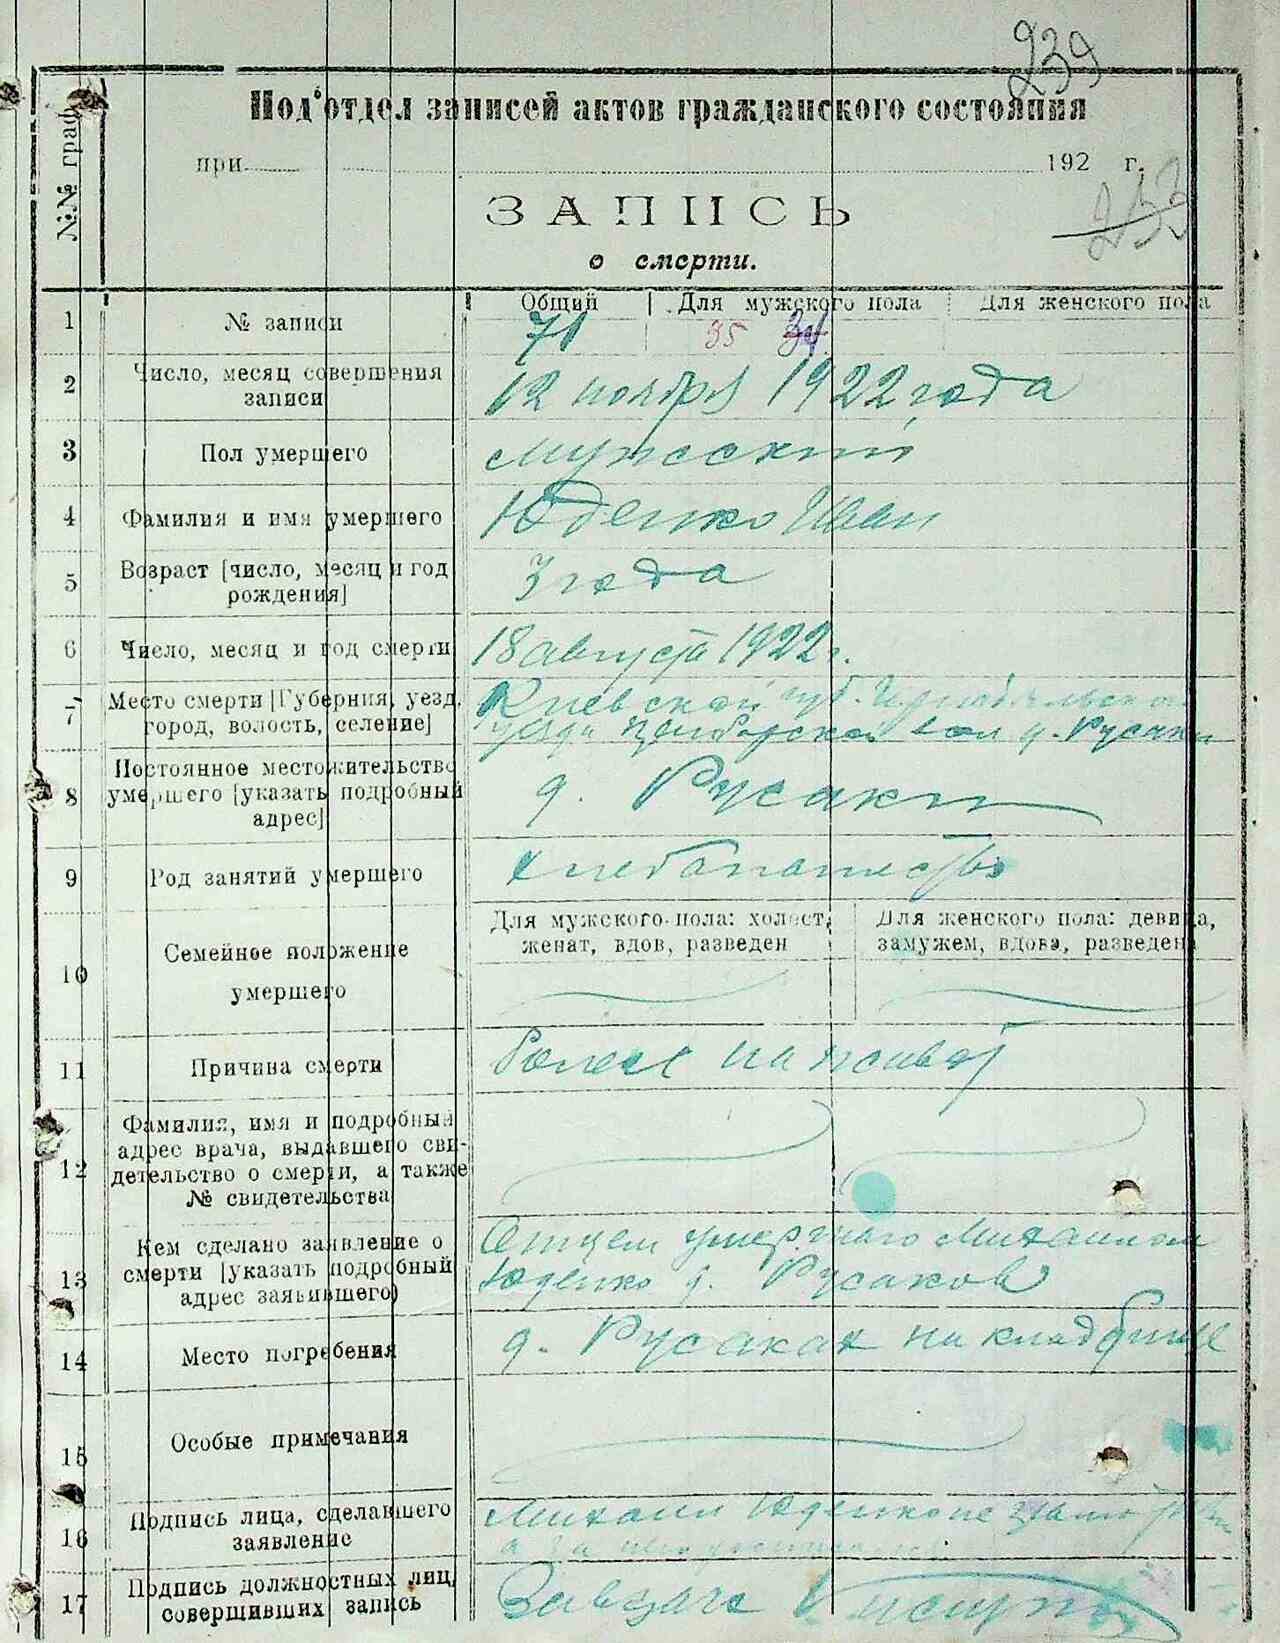 239
Под'отдел записей актов гражданского состояния
при 192 г.
253
ЗАПИСЬ
о смерти.
№№ граф
Общий Для мужского пола Для женского пола
1 № записи 71 35 34
2 Число, месяц совершения
записи
12 ноября 1922 года
3 Пол умершего мужеский
4 Фамилия и имя умершего Юденко Иван
5 Возраст [число, месяц и год
рождения]
3 года
6 Число, месяц и год смерти 18 августа 1922 г.
7 Место смерти [Губерния, уезд,
город, волость, селение]
Киевской губ. Чернобыльского
уезда вол д. Русаки
8 Постоянное местожительство
умершего [указать подробный
адрес]
д. Русаки
9 Род занятий умершего хлебопашество
10 Семейное положение
умершего
Для мужского пола: холост,
женат, вдов, разведен
Для женского пола: девица,
замужем, вдова, разведен
11 Причина смерти болел на живот
12 Фамилия, имя и подробный
адрес врача, выдавшего сви-
детельство о смерти, а также
№ свидетельства
13 Кем сделано заявление о
смерти [указать подробный
адрес заявившего)
Отцем умершаго Михаилом
Юденко д. Русаков
14 Место погребения д. Русаках на кладбище
15 Особые примечания
16 Подпись лица, сделавшего
заявление
Михаил Юденко не
а за него
17 Подпись должностных лиц,
совершивших запись
Завзагс